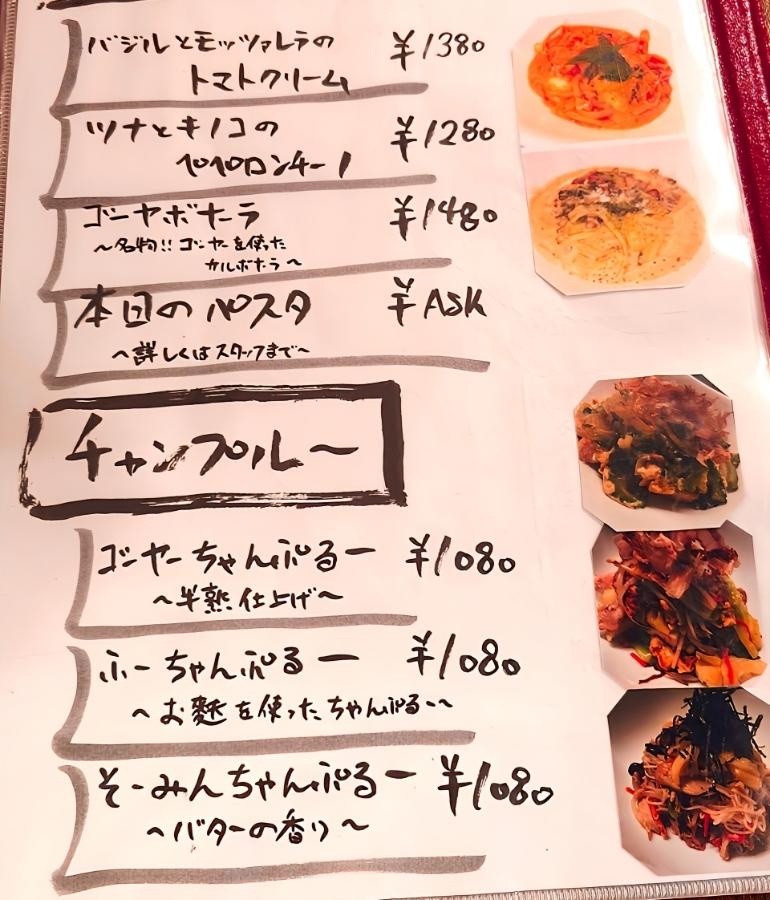 バジルとモッツァレラの ¥1380
トマトクリーム
ツナとキノコの ¥1280
ペペロンチーノ
ゴーヤボナーラ ¥1480
～名物!! ゴーヤーを使った
カルボナーラ～
本日のパスタ ¥ASK
～詳しくはスタッフまで～
チャンプルー
ゴーヤーちゃんぷるー ¥1080
～半熟仕上げ～
ふーちゃんぷるー ¥1080
～お麩を使ったちゃんぷるー～
そーみんちゃんぷるー ¥1080
～バターの香り～